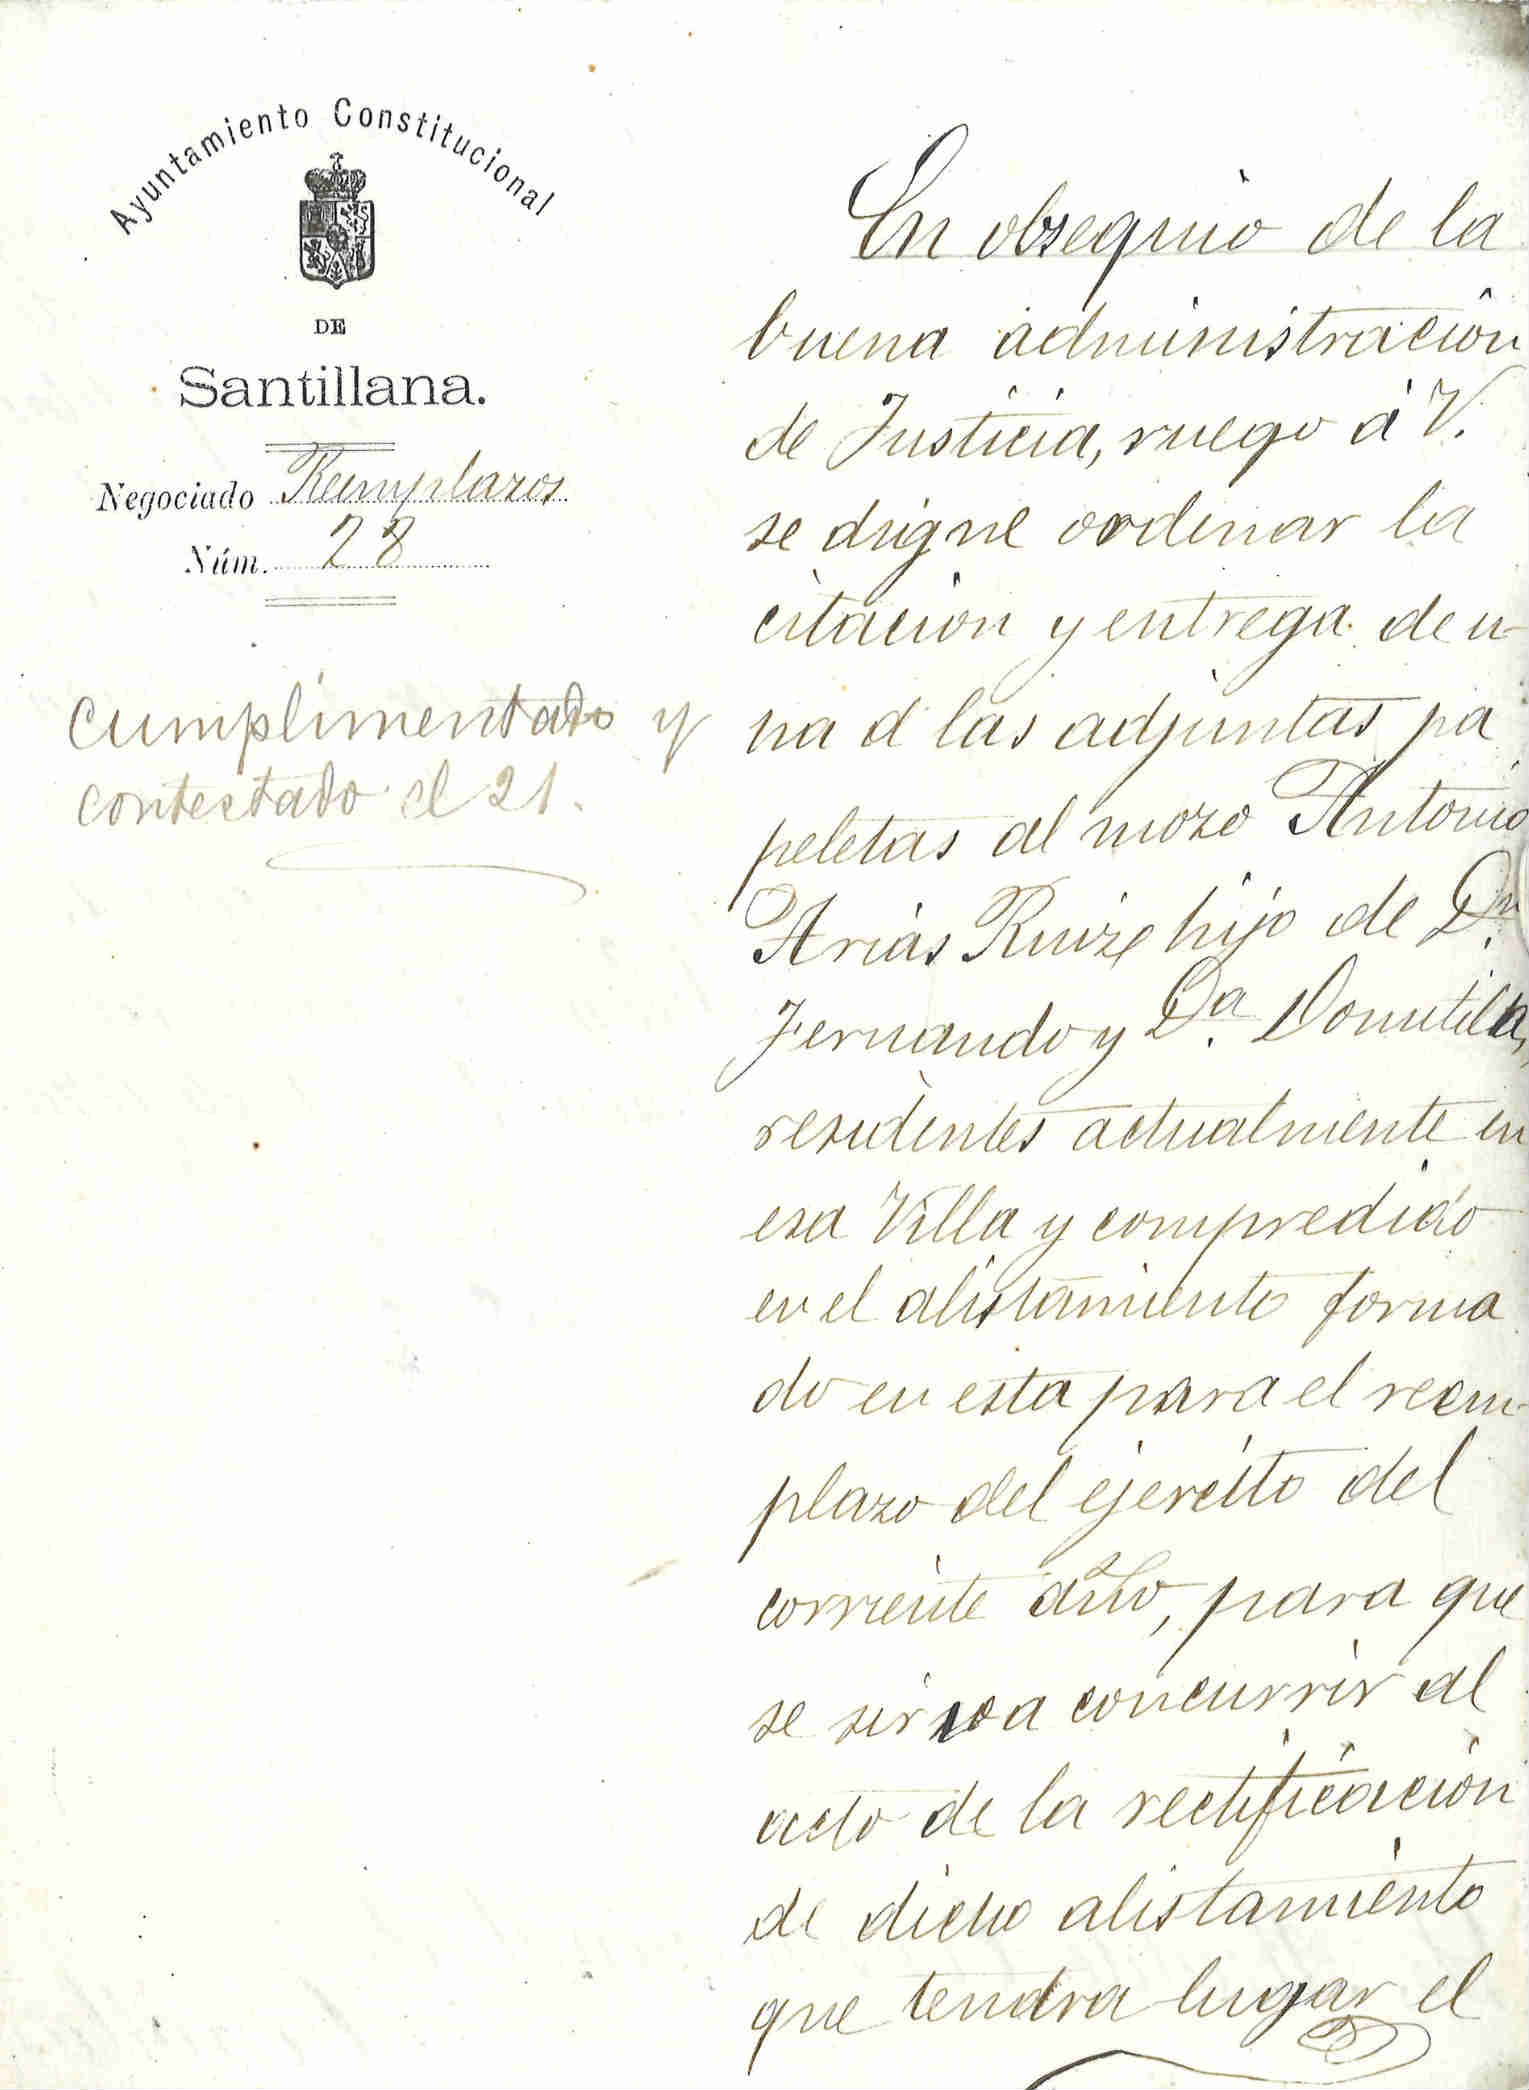 Ayuntamiento Constitucional
DE
Santillana.
Negociado Reemplazos
Núm. 28
cumplimentado y
contestado el 21.
En obsequio de la
buena administración
de Justicia, ruego á V.
se digne ordenar la
citación y entrega de u-
na d las adjuntas pa
peletas al mozo Antonio
Arias Ruiz, hijo de Dn.
Fernando y Da. Domitila,
residentes actualmente en
esa Villa y compredido
en el alistamiento forma
do en esta para el reem-
plazo del ejercito del
corriente año, para que
se sirva concurrir al
acto de la rectificación
de dicho alistamiento
que tendra lugar el